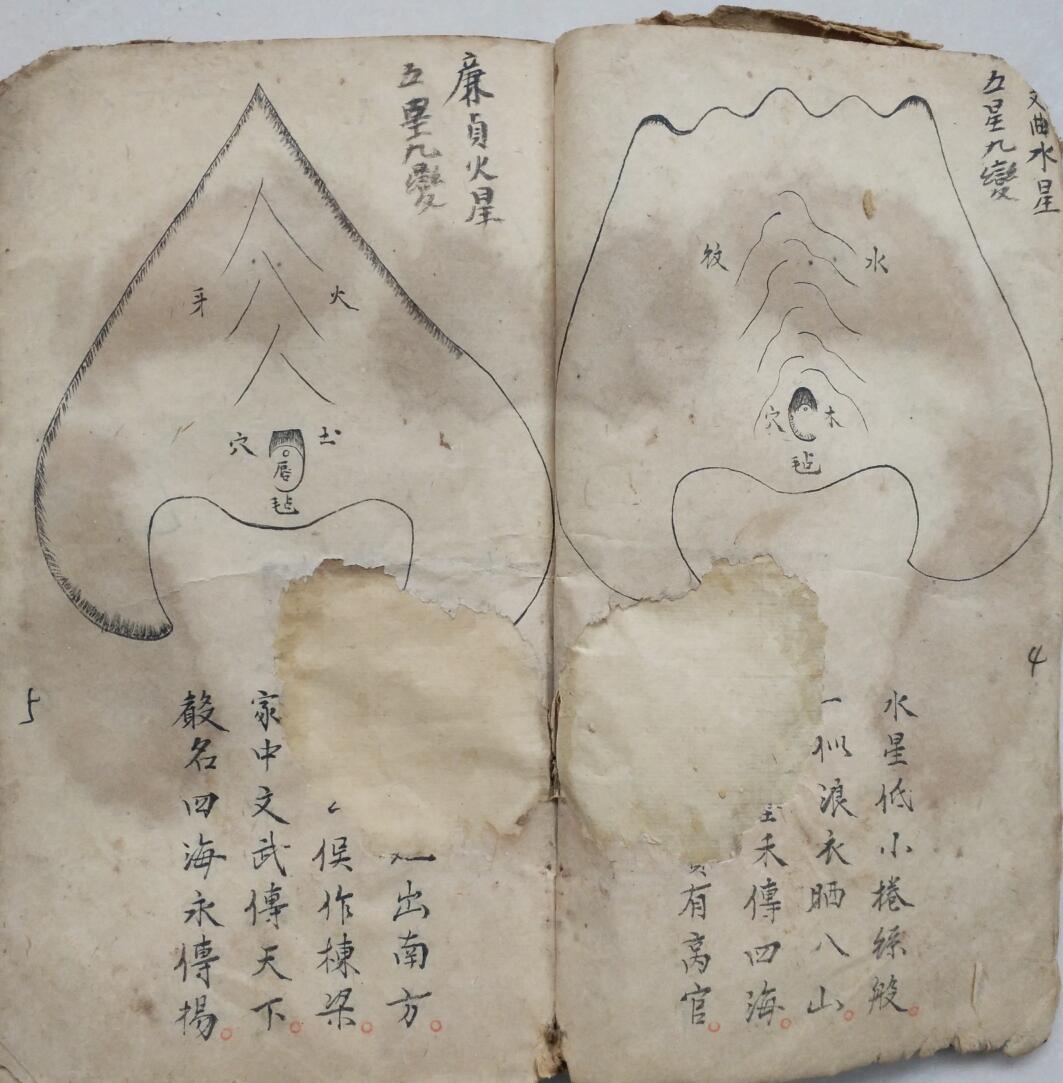 文曲水星
五星九變
水
紋
木
穴
毡
4
水星低小捲簾般
一似浪衣晒八山
禾傳四海
有高官
廉貞火星
五星九變
火
牙
土
穴
唇
毡
5
出南方
侯作棟梁
家中文武傳天下
聲名四海永傳揚